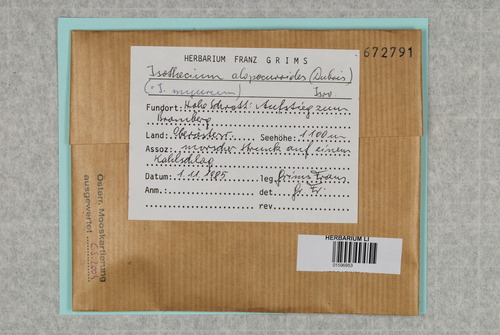 672791
HERBARIUM FRANZ GRIMS
Isothecium alopecuroides (Dubois)
(= I. myurum) Iso
Fundort: Hohe Schrott: Aufstieg zum
Bromberg
Land: Oberösterr. Seehöhe: 1100 m
Assoz: morscher Strunk auf einem
Kahlschlag
Datum: 1.11.1985 leg. Grims Franz
Anm. det. Gr. Fr.
rev.
Österr. Mooskartierung
ausgewertet
HERBARIUM LI